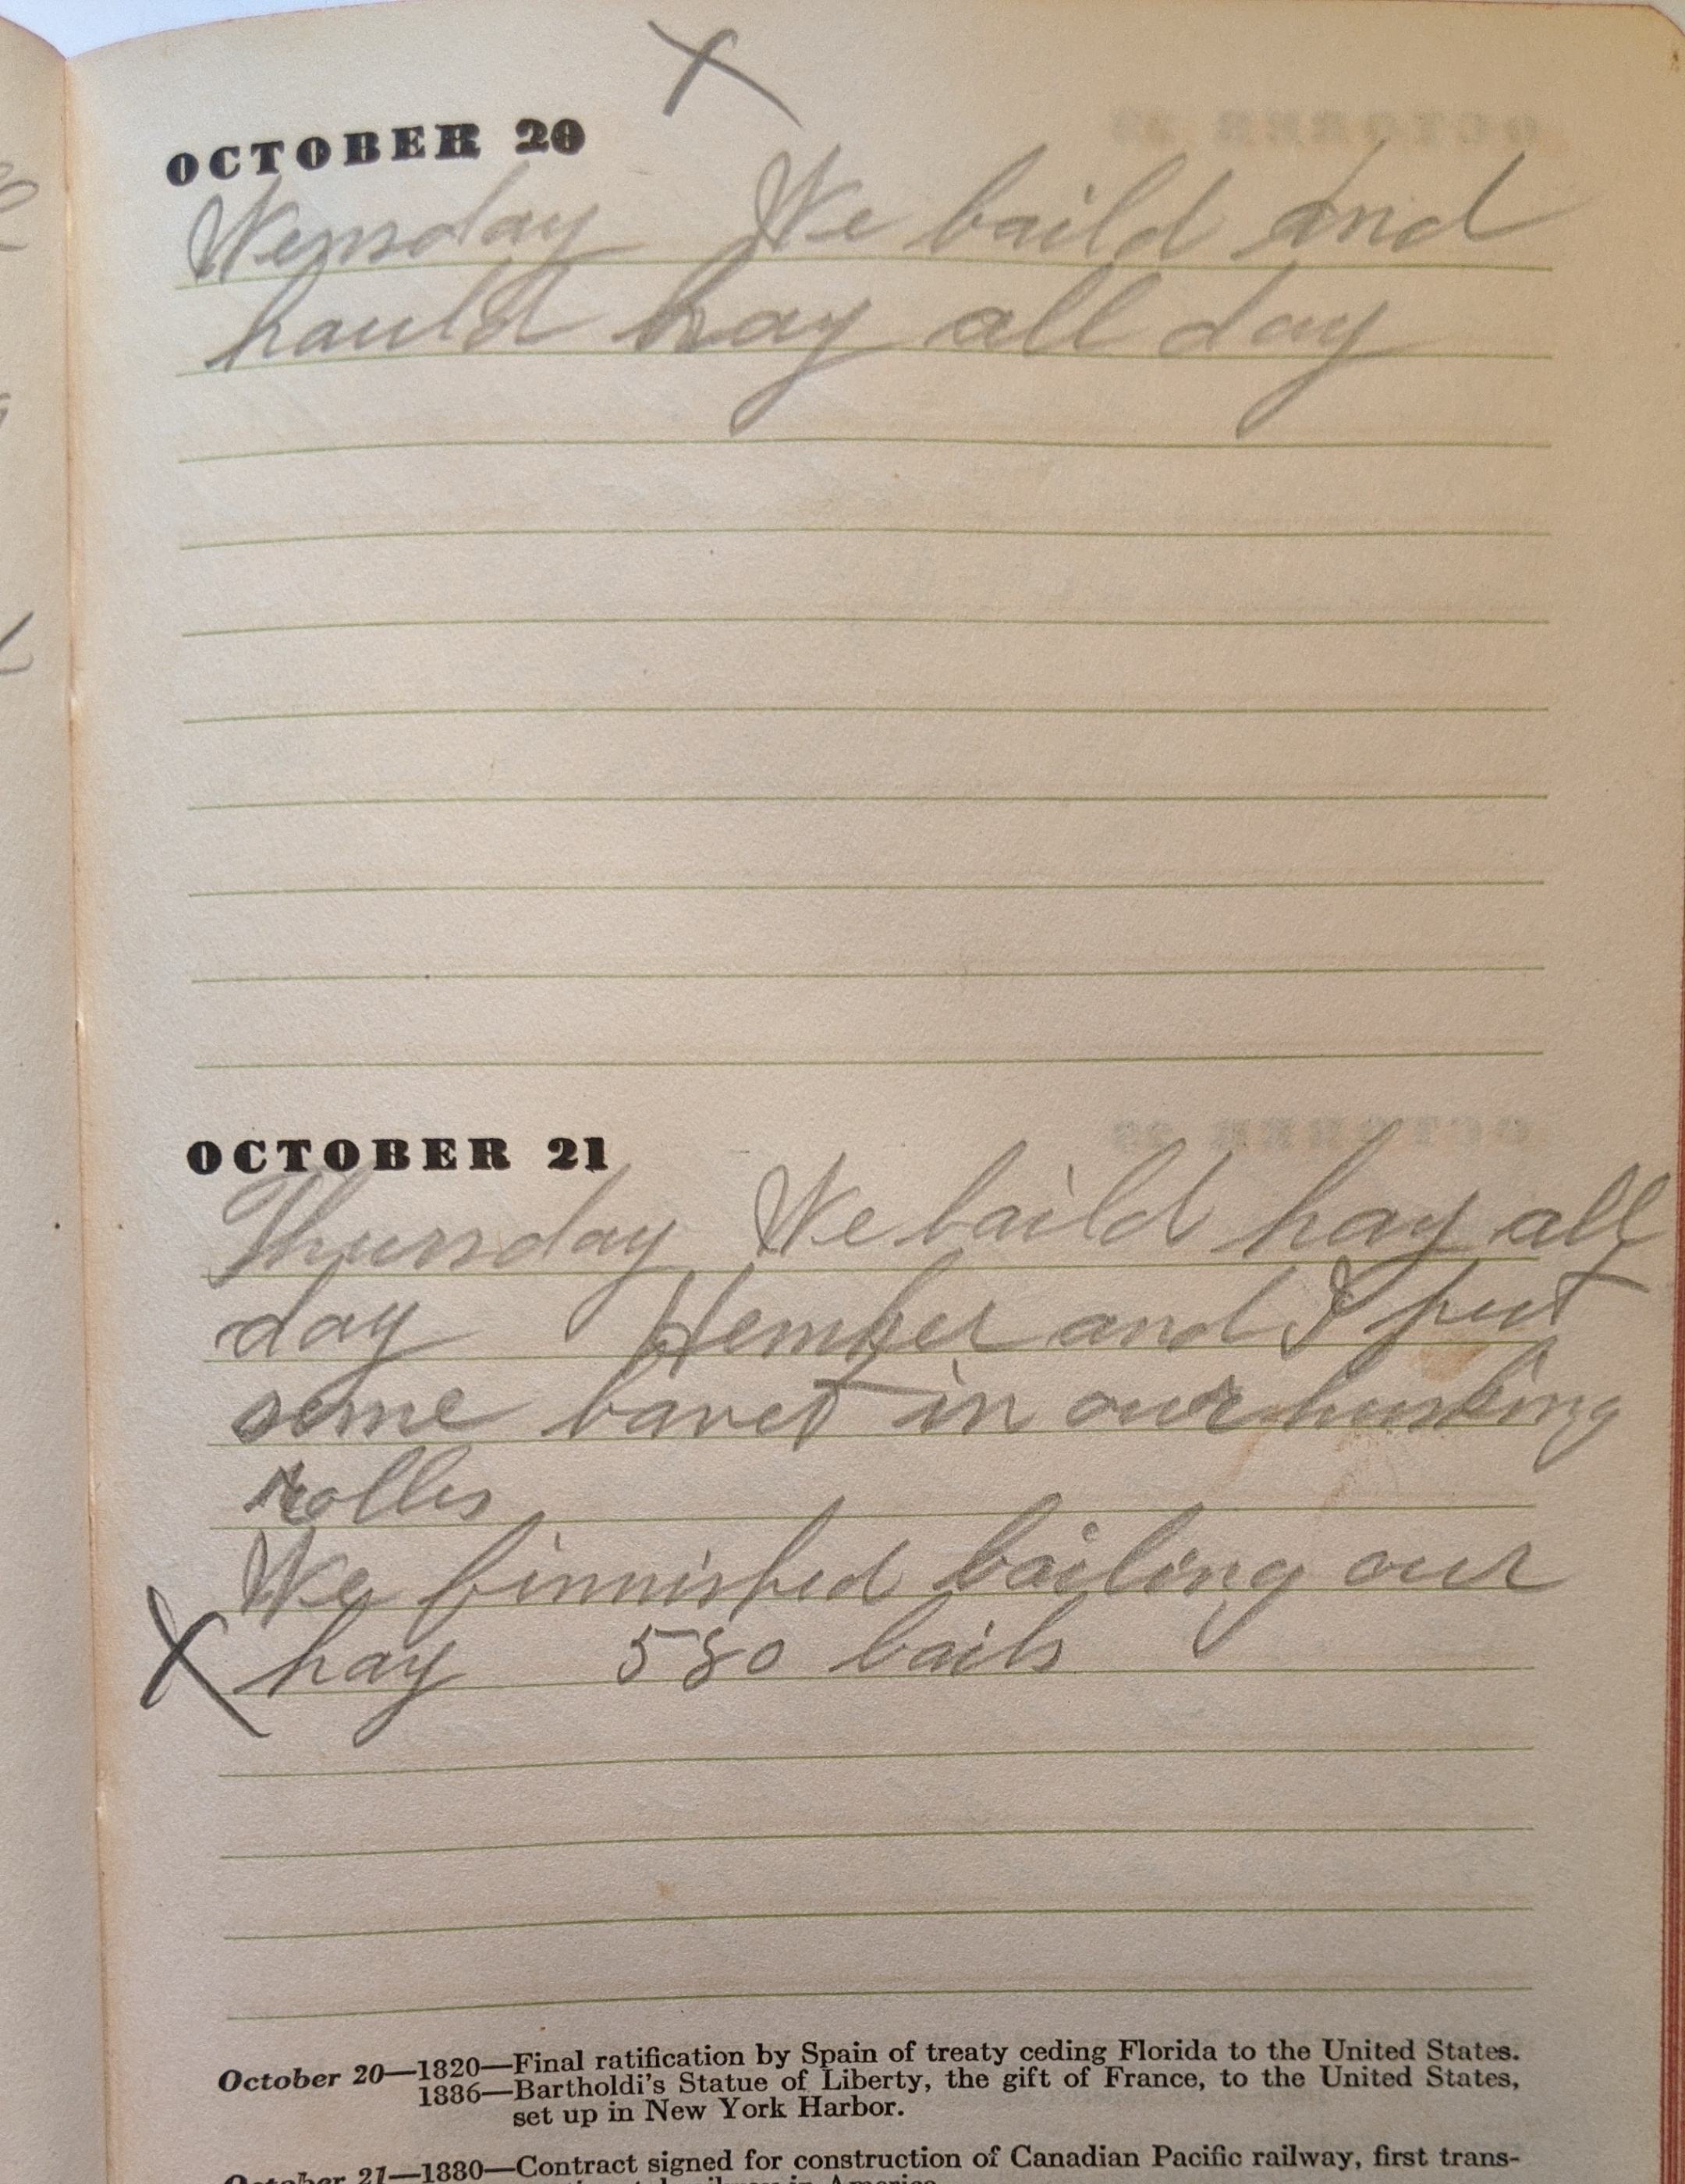 OCTOBER 20
Wensday We baild and
hauld hay all day
OCTOBER 21
Thursday We baild hay all
day and I put
some in our husking
rolles
We finnished bailing our
hay 580 bails
October 20—1820—Final ratification by Spain of treaty ceding Florida to the United States.
1886—Bartholdi's Statue of Liberty, the gift of France, to the United States,
set up in New York Harbor.
October 21—1880—Contract signed for construction of Canadian Pacific railway, first trans-
in America